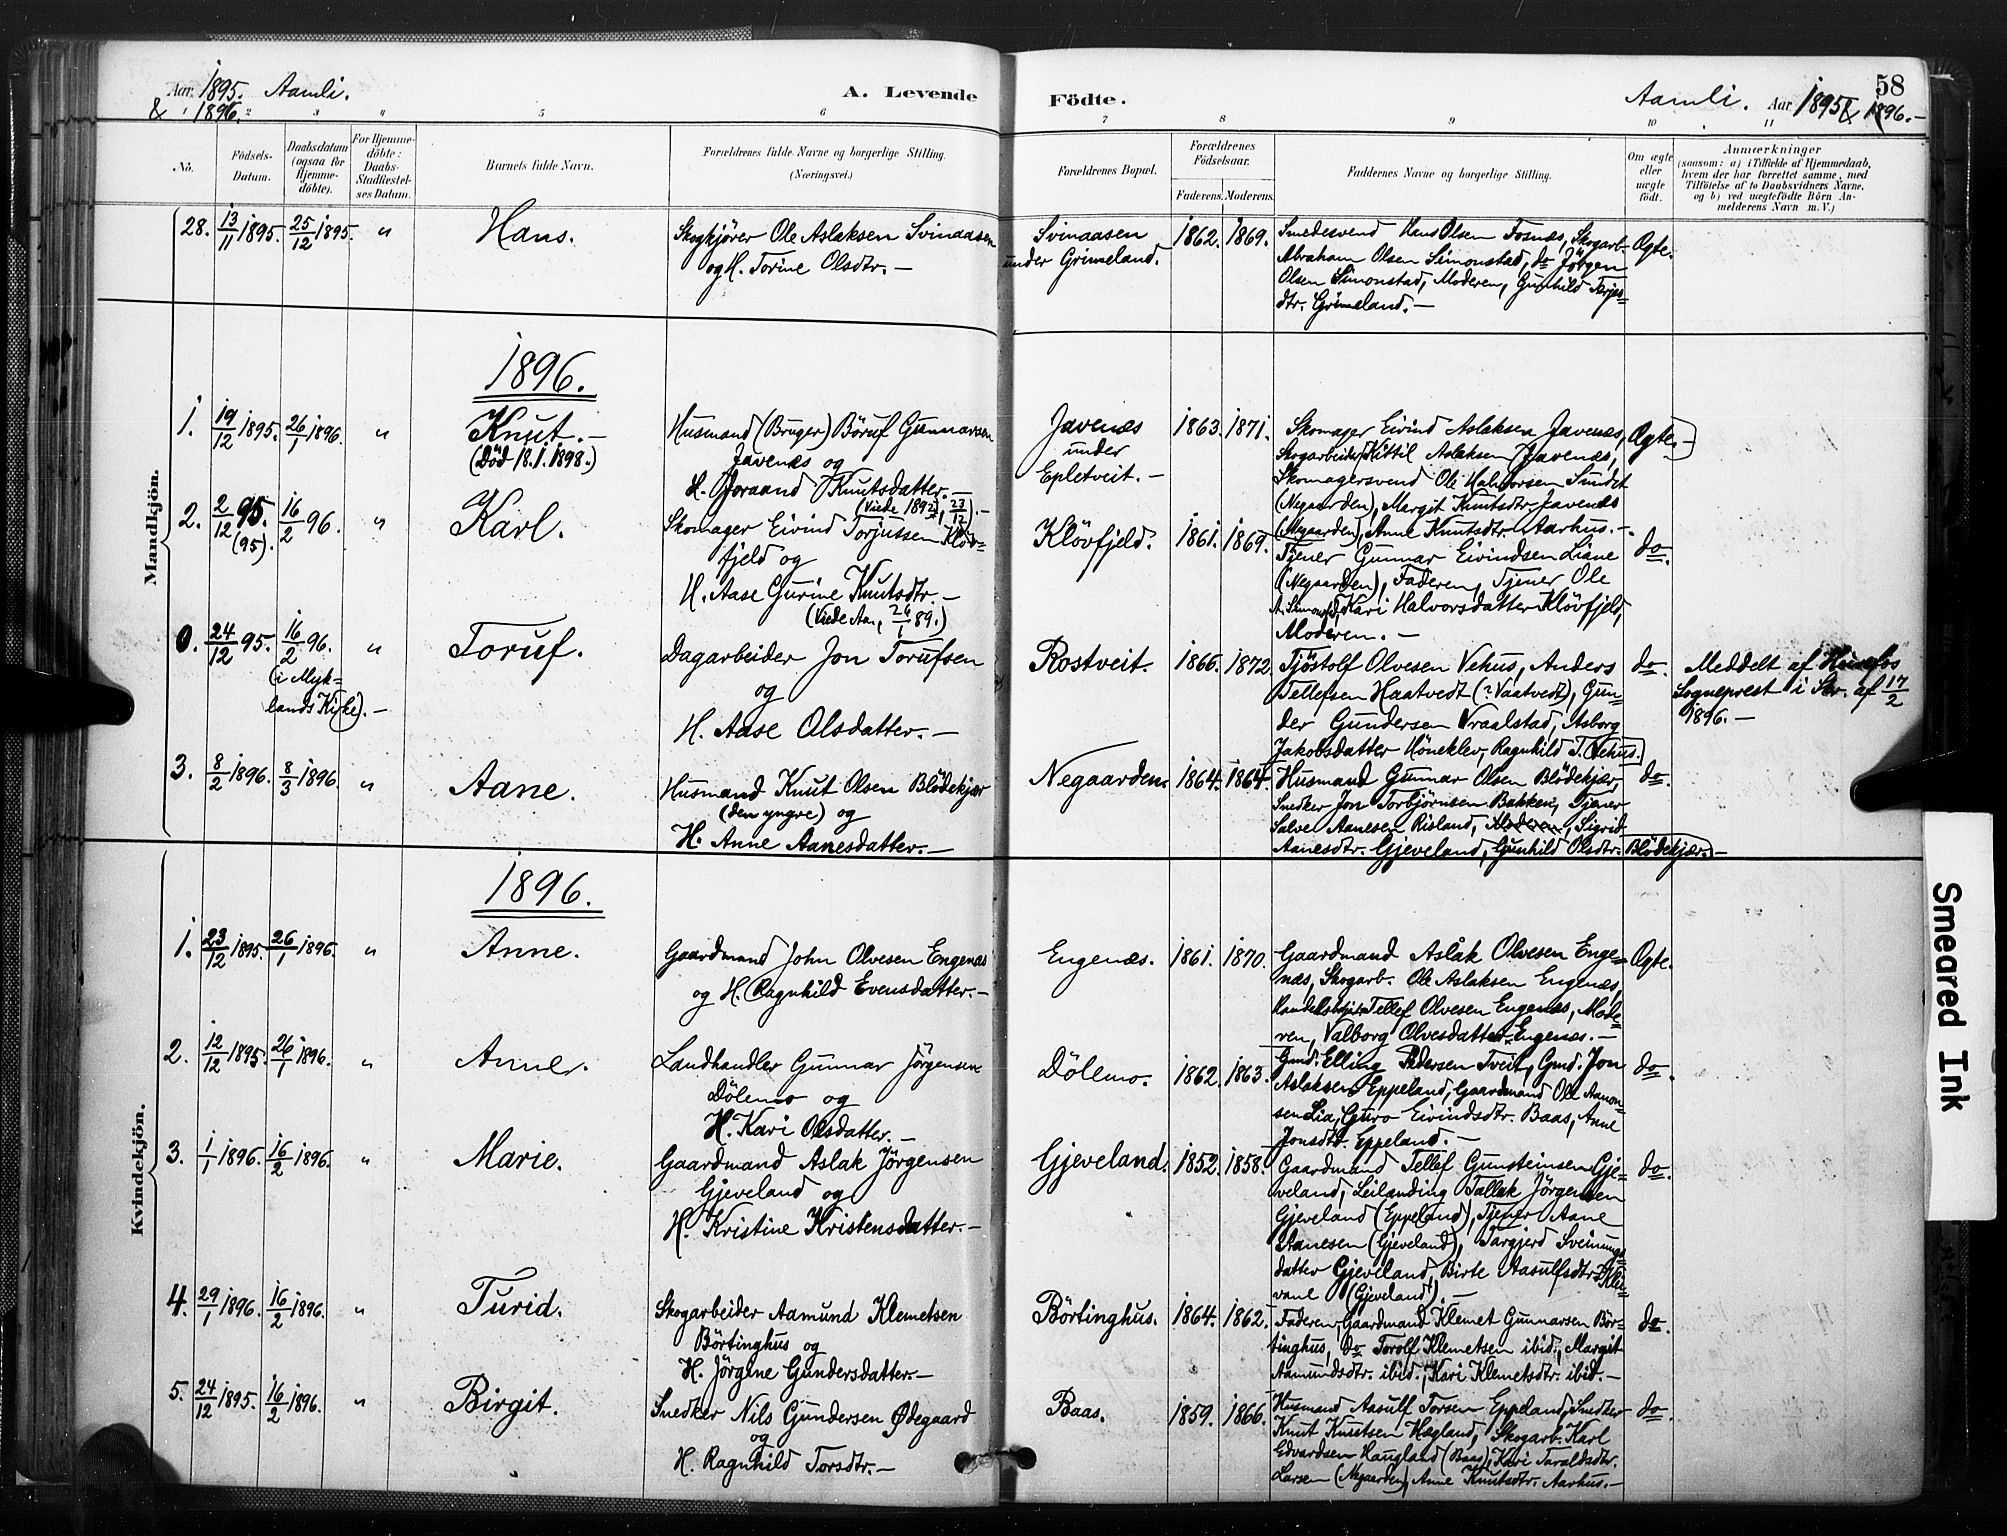 Aar 1895. Aamli.
& 1896.
A. Levende
Födte.
Aamli. Aar 1895 & 1896.-
58
1 2 3 4 5 6 7 8 9 10 11
No.
Födsels-
Datum.
Daabsdatum
(ogsaa for
Hjemme-
döbte).
For Hjemme-
döbte:
Daabs-
Stadfæstel-
ses Datum.
Barnets fulde Navn.
Forældrenes fulde Navne og borgerlige Stilling.
(Næringsvei.)
Forældrenes Bopæl.
Forældrenes
Födselsaar.
Faderens. Moderens.
Faddernes Navne og borgerlige Stilling.
Om ægte
eller
uægte
födt.
Anmærkninger
(saasom: a) i Tilfælde af Hjemmedaab,
hvem der har forrettet samme, med
Tilföielse af to Daabsvidners Navne,
og b) ved uægtefödte Börn An-
melderens Navn m. V.)
Mandkjön.
28. 13/11 1895. 25/12 1895. " Hans.
Skogkjörer Ole Aslaksen Svinaasen
og H. Torine Olsdtr. -
Svinaasen
under Grimeland.
1862. 1869.
Smedesvend Hans Olsen Fosnæs, Skogarb.
Abraham Olsen Simonstad, do Jörgen
Olsen Simonstad, Moderen, Gunhild Terjes-
dtr. Grimeland. -
Ægte.
1896.
1. 19/12 1895. 26/1 1896. " Knut. -
(Död 18.1.1898.)
Husmand (Bruger) Böruf Gunnarsen
Javenæs og
H. Joraand Knutsdatter. -
(Viede 1892, 23/12). -
Javenæs
under
Epletveit. -
1863. 1871.
Skomager Eivind Aslaksen Javenæs,
Skogarbeider Kittil Aslaksen Javenæs,
Skomagersvend Ole Halvorsen Sundet
(Negaarden), Margit Knutsdtr. Javenæs
(Negaarden), Anne Knutsdtr. Aarhus. -
Ægte. -
2. 2/12 95. (95). 16/2 96. " Karl.
Skomager Eivind Torjussen Klöv-
fjeld og
H. Aase Gurine Knutsdtr. -
(Viede Aa., 26/1 89.)
Klövfjeld.
1861. 1869.
Tjener Gunnar Eivindsen Liane
(Negaarden), Faderen, Tjener Ole
A. Simonstad, Kari Halvorsdatter Klövfjeld,
Moderen. -
do.
0. 24/12 95. 16/2 96. " Toruf.
(i Myk-
lands Kirke). -
Dagarbeider Jon Torufsen
og
H. Aase Olsdatter. -
Rostveit.
1866. 1872
Tjöstolf Olvesen Vehus, Anders
Tellefsen Haatvedt (? Vaatvedt), Gun-
der Gundersen Vraalstad, Asborg
Jakobsdatter Höneklev, Ragnhild T. Vehus.
do.
Meddelt af
Sogneprest i Skr. af 17/2
1896. -
3. 8/2 1896. 8/3 1896. " Aane.
Husmand Knut Olsen Blödekjær
(den yngre) og
H. Anne Aanesdatter. -
Negaarden.
1864. 1864.
Husmand Gunnar Olsen Blödekjær,
Snedker Jon Torbjörnsen Bakken, Tjener
Salve Aanesen Risland, Moderen, Sigrid
Aanesdtr. Gjeveland, Gunhild Olsdtr. Blödekjær. -
do.
Kvindekjön.
1896.
1. 23/12 1895. 26/1 1896. " Anne.
Gaardmand John Olvesen Engenæs
og H. Ragnhild Evensdatter. -
Engenæs.
1861. 1870.
Gaardmand Aslak Olvesen Enge-
næs, Skogarb. Ole Aslaksen Engenæs,
Tellef Olvesen Engenæs, Mode-
ren, Valborg Olvesdatter Engenæs. -
Ægte.
2. 12/12 1895. 26/1 1896. " Anne.
Landhandler Gunnar Jörgensen
Dölemo og
H. Kari Olsdatter. -
Dölemo.
1862. 1863.
Gmd. Elling Pedersen Tveit, Gmd. Jon
Aslaksen Eppeland, Gaardmand Ole Aanon-
sen Lia, Guro Eivindsdtr. Baas, Anne
Jonsdtr. Eppeland. -
do.
3. 1/1 1896. 16/2 1896. " Marie.
Gaardmand Aslak Jörgensen
Gjeveland og
H. Kristine Kristensdatter. -
Gjeveland.
1852. 1858.
Gaardmand Tellef Gunsteinsen Gje-
veland, Leilænding Tallak Jörgensen
Gjeveland (Eppeland), Tjener Aane
Aanesen (Gjeveland), Targjerd Sveinungs-
datter Gjeveland, Birte Aasulfsdtr. Kle-
vane (Gjeveland). -
do.
4. 29/1 1896. 16/2 1896. " Turid.
Skogarbeider Aamund Klemetsen
Börtinghus og
H. Jörgine Gundersdatter. -
Börtinghus.
1864. 1862.
Faderen, Gaardmand Klemet Gunnarsen Bör-
tinghus, do Torolf Klemetsen ibid., Margit
Aamundsdtr. ibid., Kari Klemetsdtr. ibid. -
do.
5. 24/12 1895. 16/2 1896. " Birgit.
Snedker Nils Gundersen Ödegaard
og
H. Ragnhild Torsdtr. -
Baas.
1859. 1866.
Husmand Aasulf Torsen Eppeland, Snedker
Knut Knutsen Hægland, Skogarb. Karl
Edvardsen Haugland (Baas), Kari Taraldsdtr.
Larsen (Negaarden), Anne Knutsdtr. Aarhus. -
do.
Smeared Ink